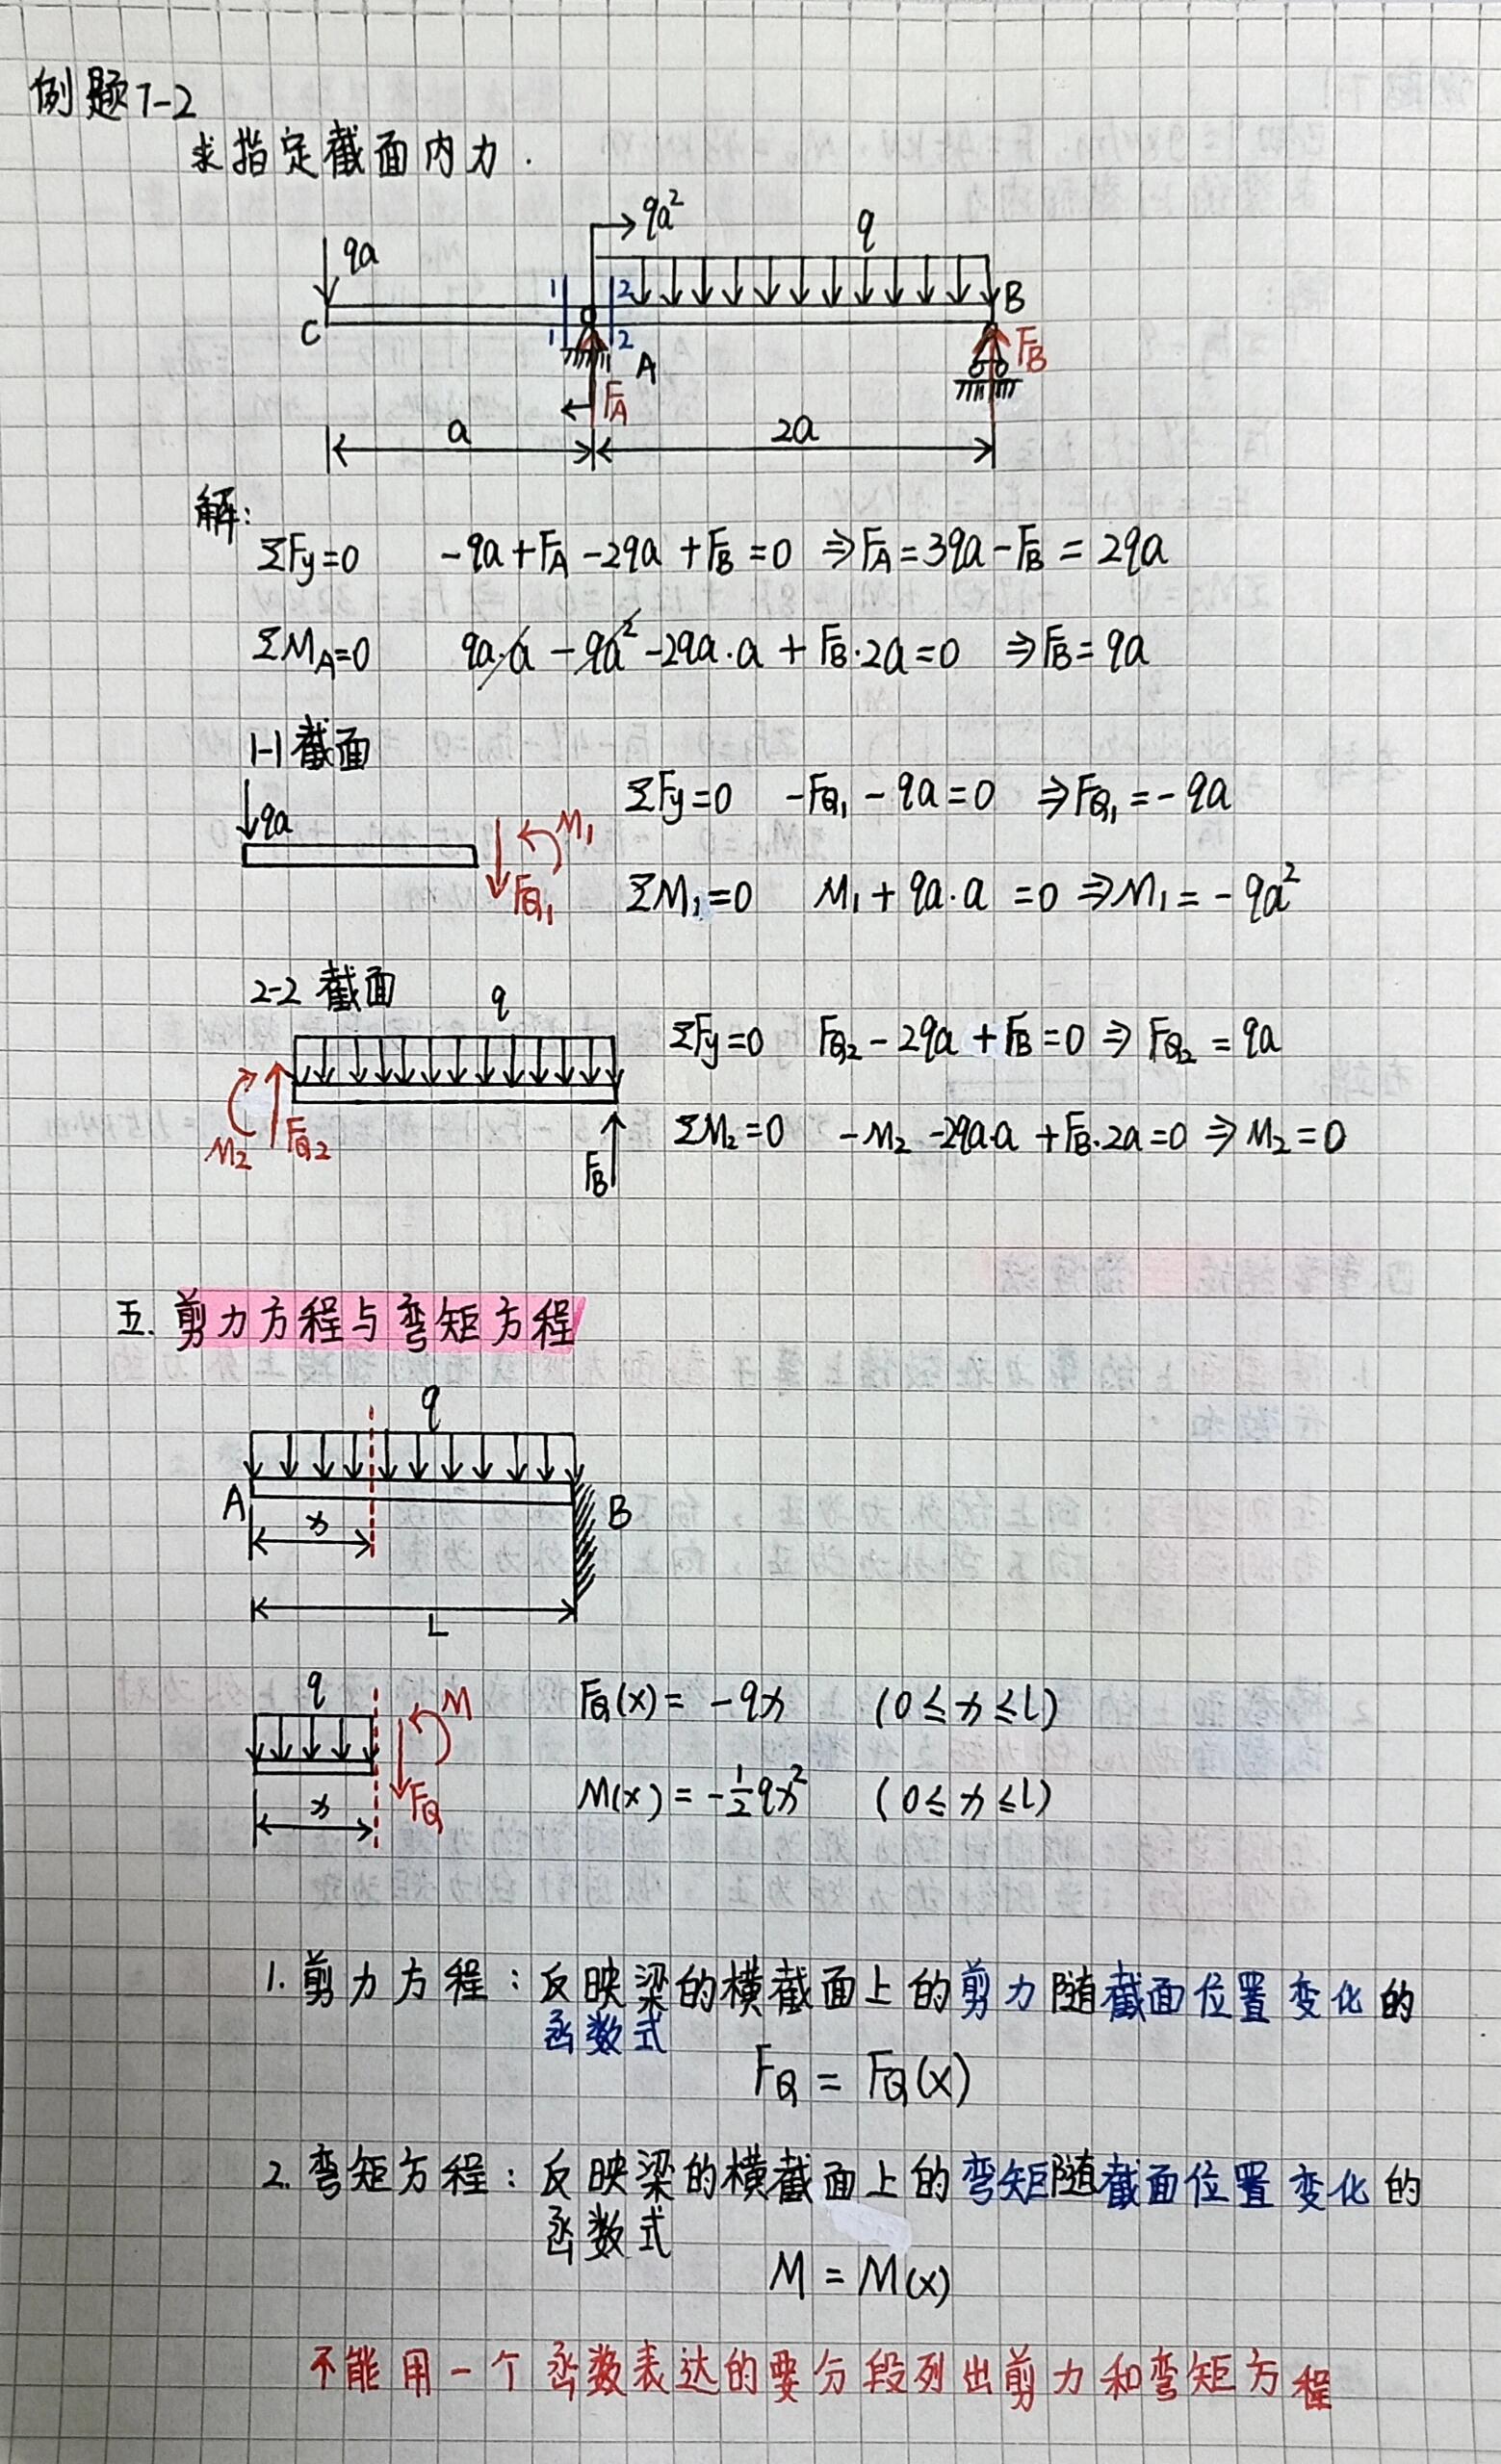 例题7-2
求指定截面内力.
qa²
q
qa
1 2
C B
1 2
A F_B
F_A
a 2a
解:
ΣFy=0 -qa+F_A-2qa+F_B=0 ⇒F_A=3qa-F_B=2qa
ΣM_A=0 qa·a-qa²-2qa·a+F_B·2a=0 ⇒F_B=qa
1-1截面
qa M₁
F_Q₁
ΣFy=0 -F_Q₁-qa=0 ⇒F_Q₁=-qa
ΣM₁=0 M₁+qa·a=0 ⇒M₁=-qa²
2-2 截面
q
M₂ F_Q₂
F_B
ΣFy=0 F_Q₂-2qa+F_B=0 ⇒ F_Q₂=qa
ΣM₂=0 -M₂-2qa·a+F_B·2a=0 ⇒ M₂=0
五. 剪力方程与弯矩方程
q
A B
x
L
q M
F_Q
x
F_Q(x)= -qx (0≤x≤l)
M(x)=-½qx² (0≤x≤l)
1. 剪力方程：反映梁的横截面上的剪力随截面位置变化的
函数式
F_Q = F_Q(x)
2. 弯矩方程：反映梁的横截面上的弯矩随截面位置变化的
函数式
M = M(x)
不能用一个函数表达的要分段列出剪力和弯矩方程